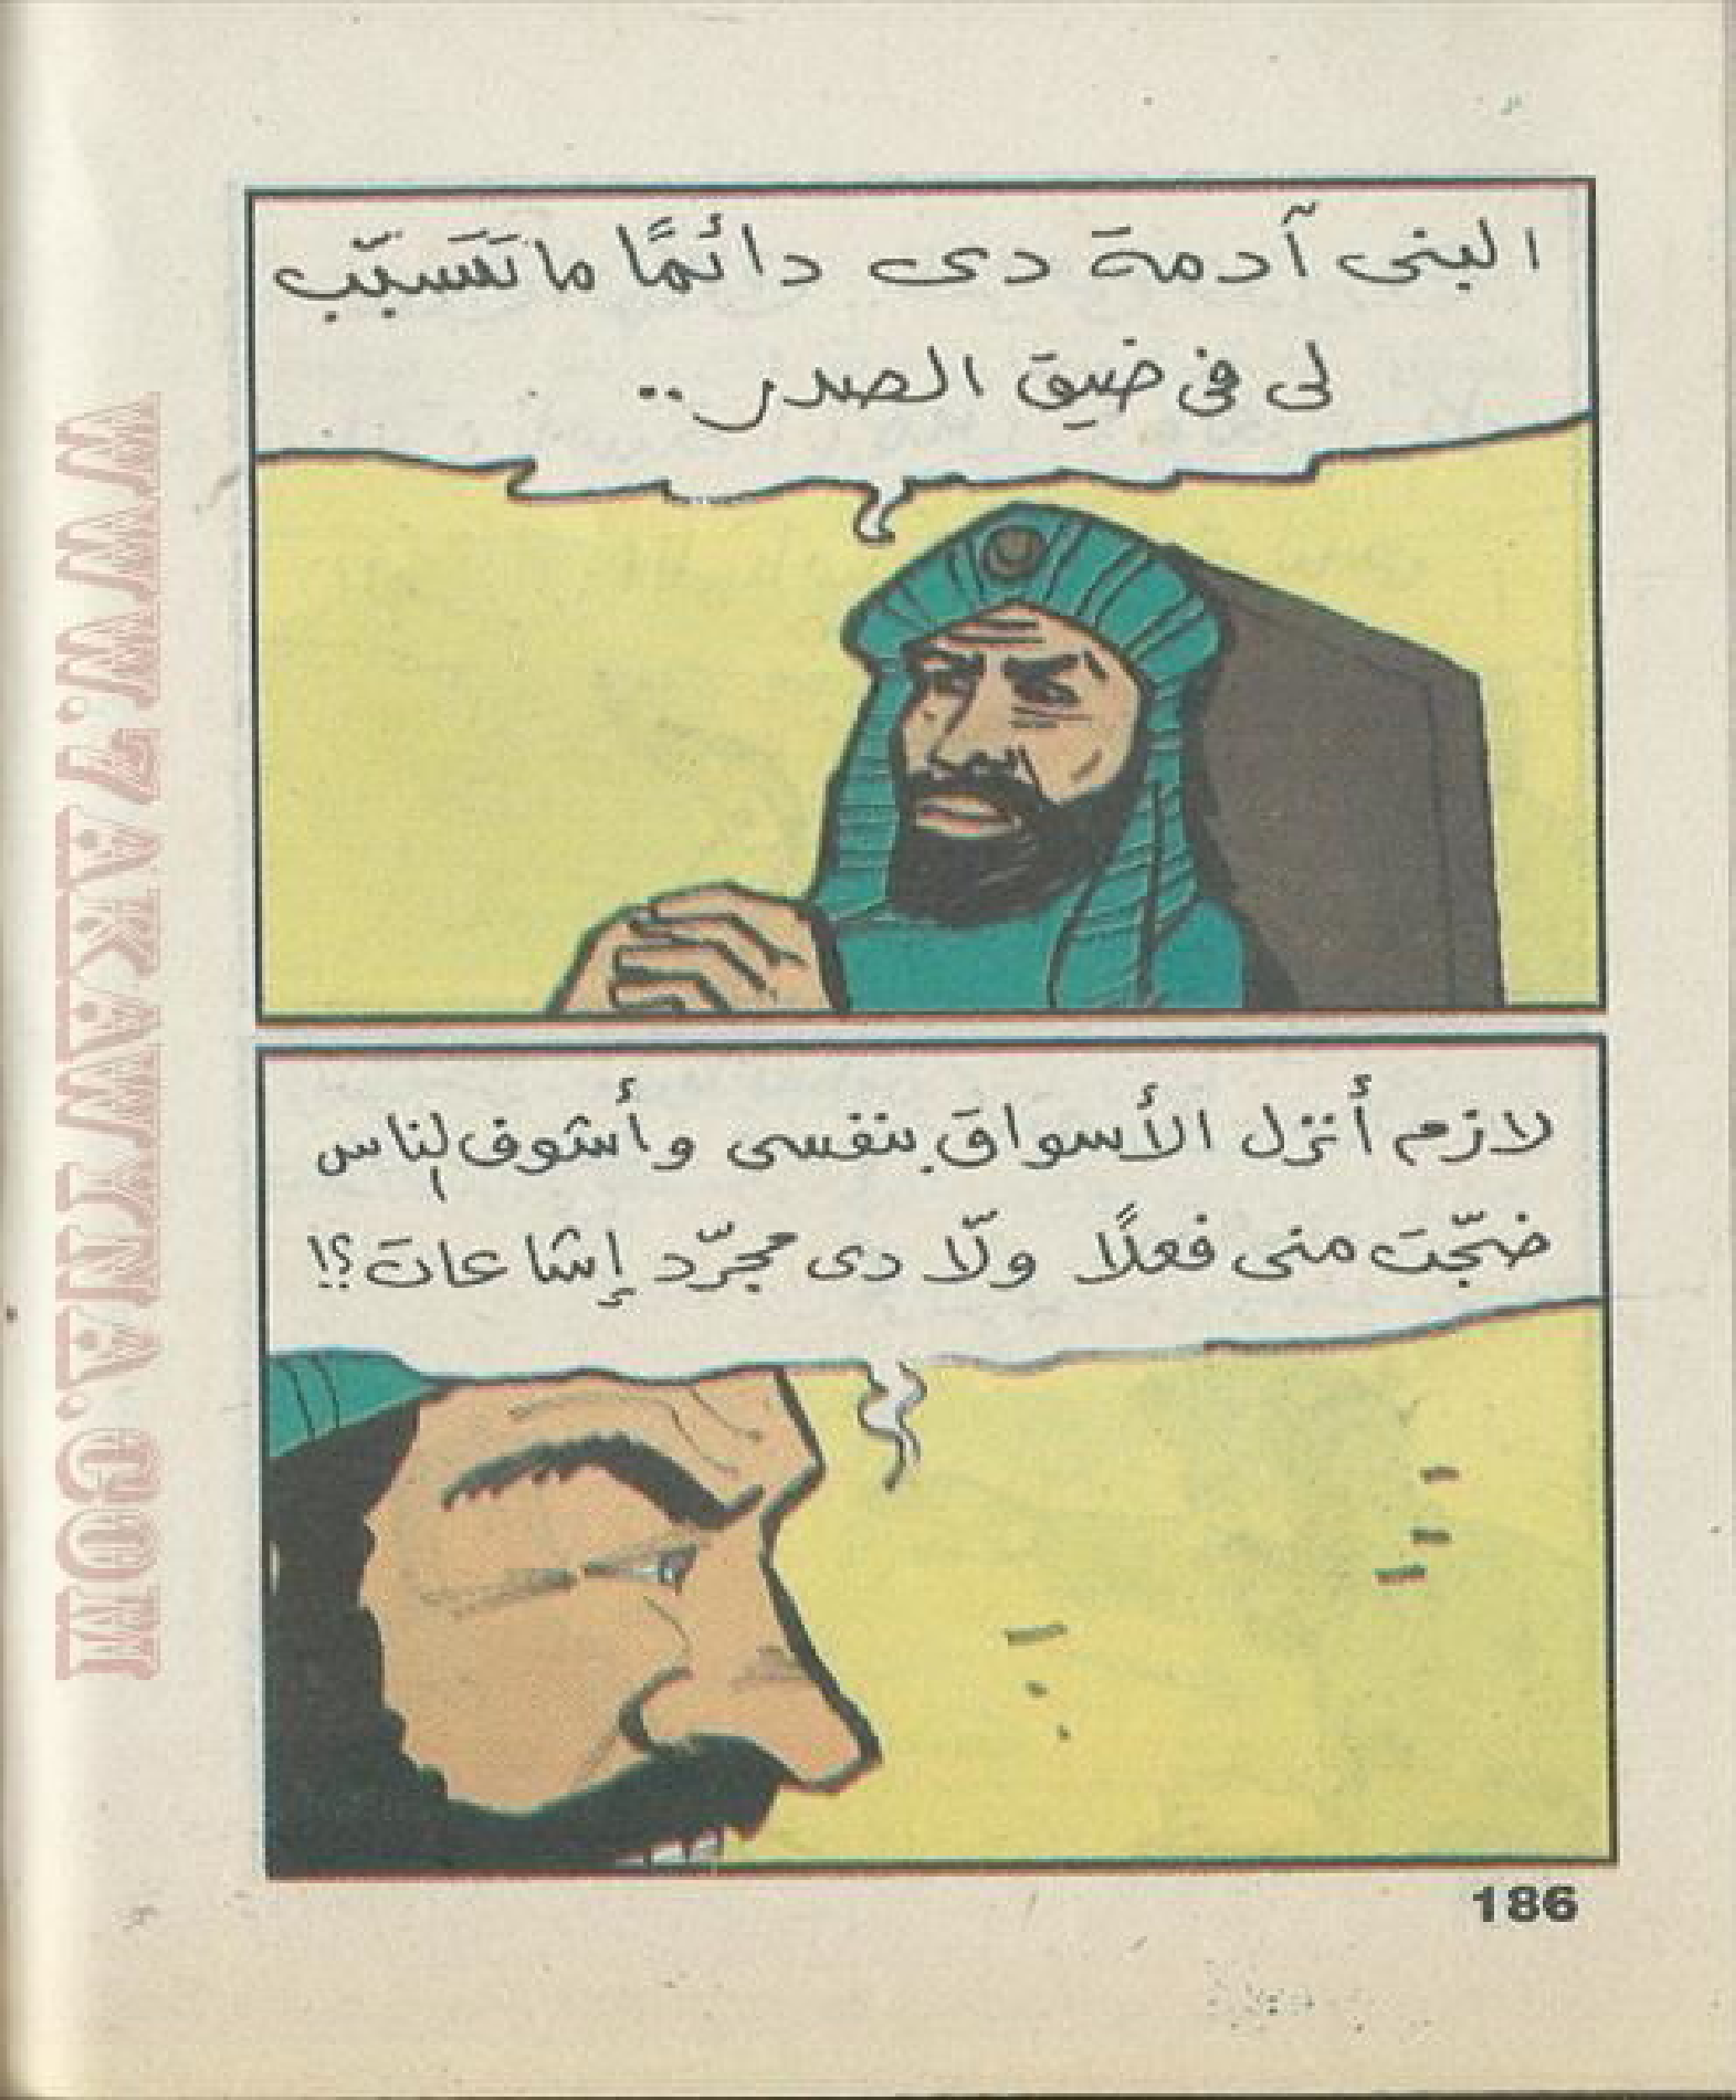 البنى آدمة دى دائمًا ما تَتَسبّب
لى فى ضيق الصدر ..
لازم أنزل الأسواق بنفسى وأشوف الناس
ضجّت منى فعلًا ولّا دى مجرّد إشاعات؟!
186
WWW.7AKAWINA.COM